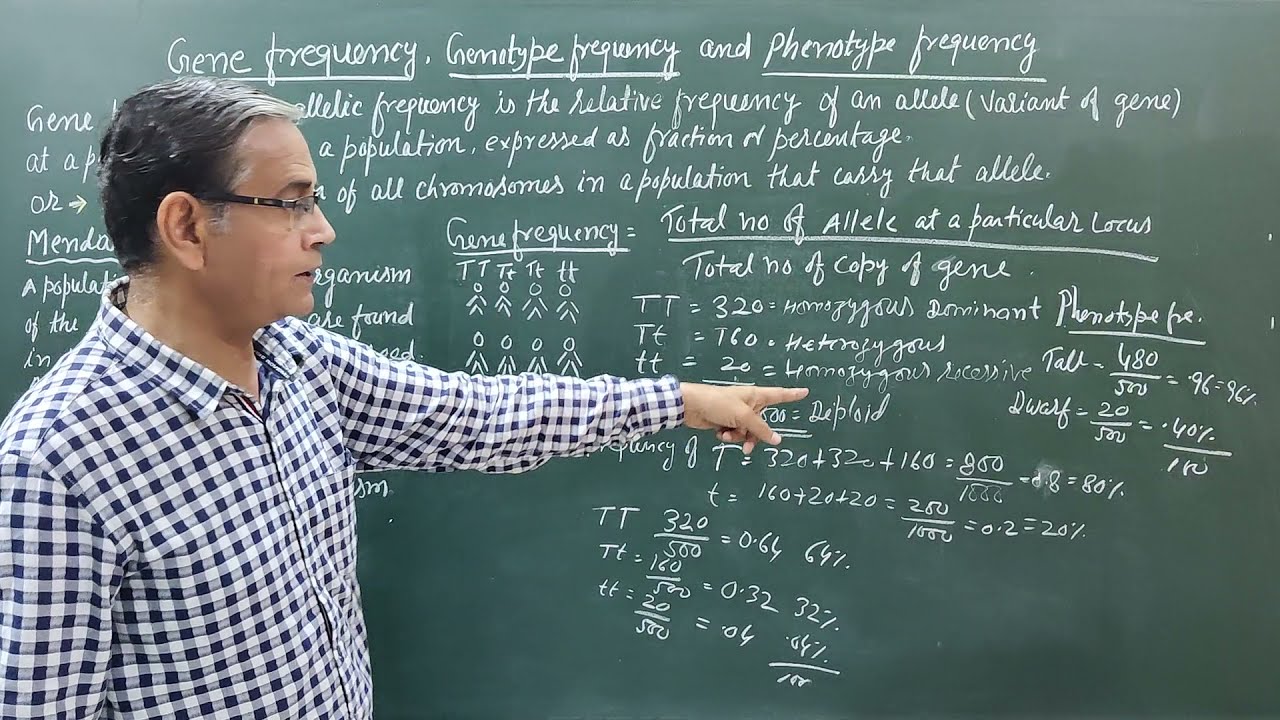 Gene frequency, Genotype frequency and Phenotype frequency
Gene allelic frequency is the relative frequency of an allele (variant of gene)
at a p a population, expressed as fraction or percentage.
or → n of all chromosomes in a population that carry that allele.
Menda
A populat organism
of the are found
in
sm
Gene frequency = Total no of Allele at a particular Locus
Total no of copy of gene.
TT Tt Tt tt
TT = 320 = Homozygous Dominant
Tt = 160 = Heterozygous
tt = 20 = Homozygous recessive
500 = Deploid
Phenotype fre.
Tall = 480/500 = .96 = 96%
Dwarf = 20/500 = .40%
100
requency of T = 320+320+160 = 800/1000 = 0.8 = 80%
t = 160+20+20 = 200/1000 = 0.2 = 20%
TT 320/500 = 0.64 64%
Tt = 160/500 = 0.32 32%
tt = 20/500 = .04 .04%
100